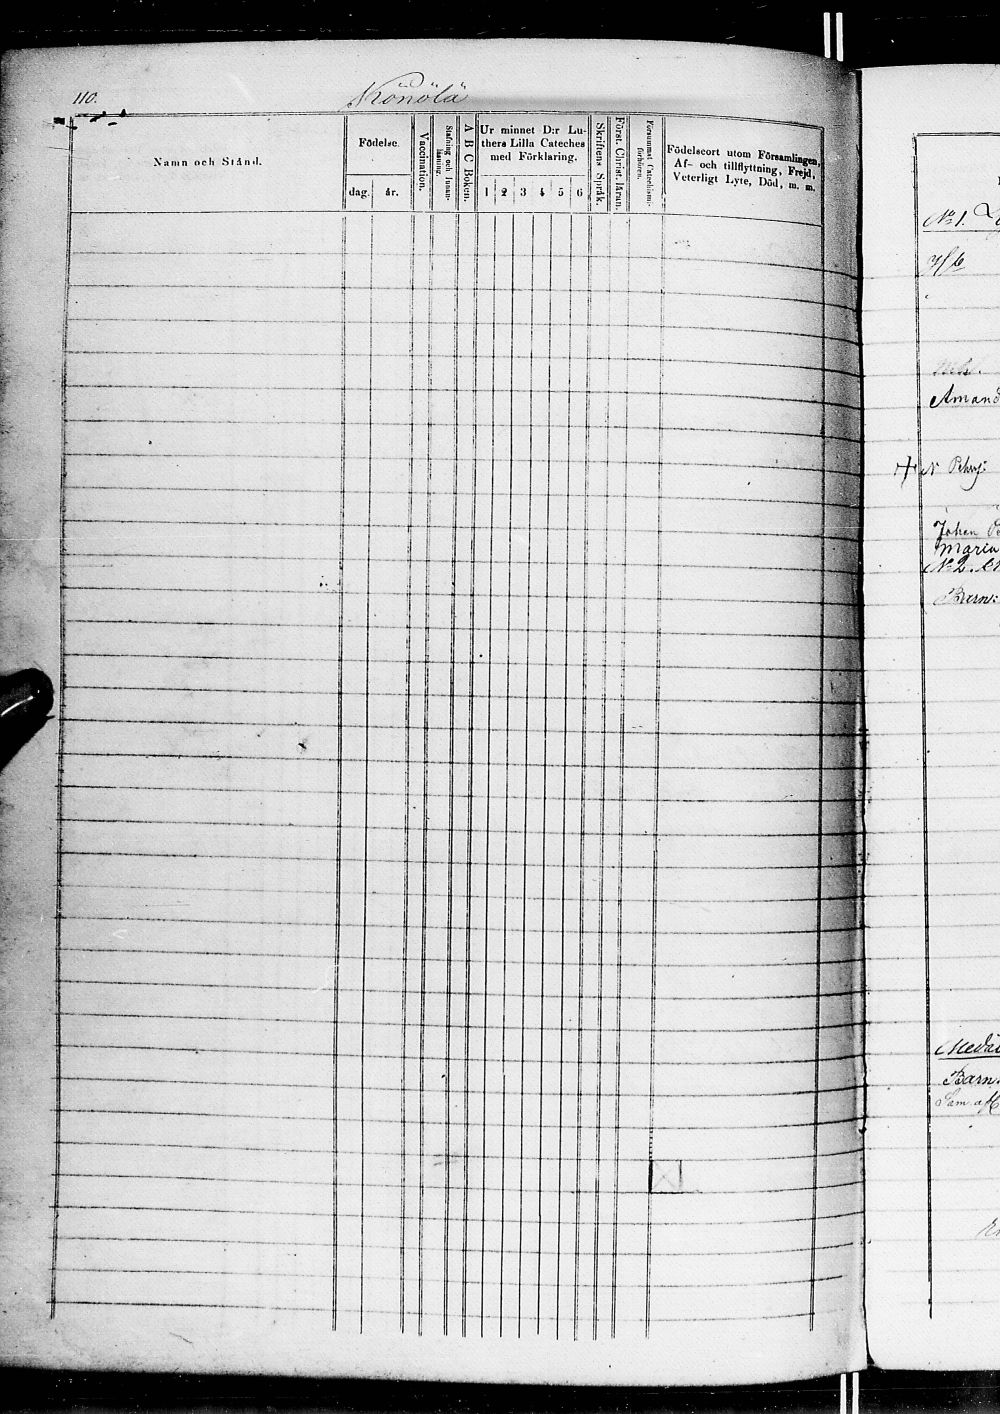 110.
Könölä
Namn och Stånd.
Födelse
dag.
år.
Vaccination.
Stafning och Innanläsning.
A B C Boken.
Ur minnet D:r Lu-
thers Lilla Cateches
med Förklaring.
1 2 3 4 5 6
Skriftens Språk.
Först. Christ. läran.
Försummat Catechismi-
förhören.
Födelseort utom Församlingen,
Af- och tillflyttning, Frejd,
Veterligt Lyte, Död, m. m.
No 1.
Amand
Johan
Maria
No 2.
Barn:
Barn